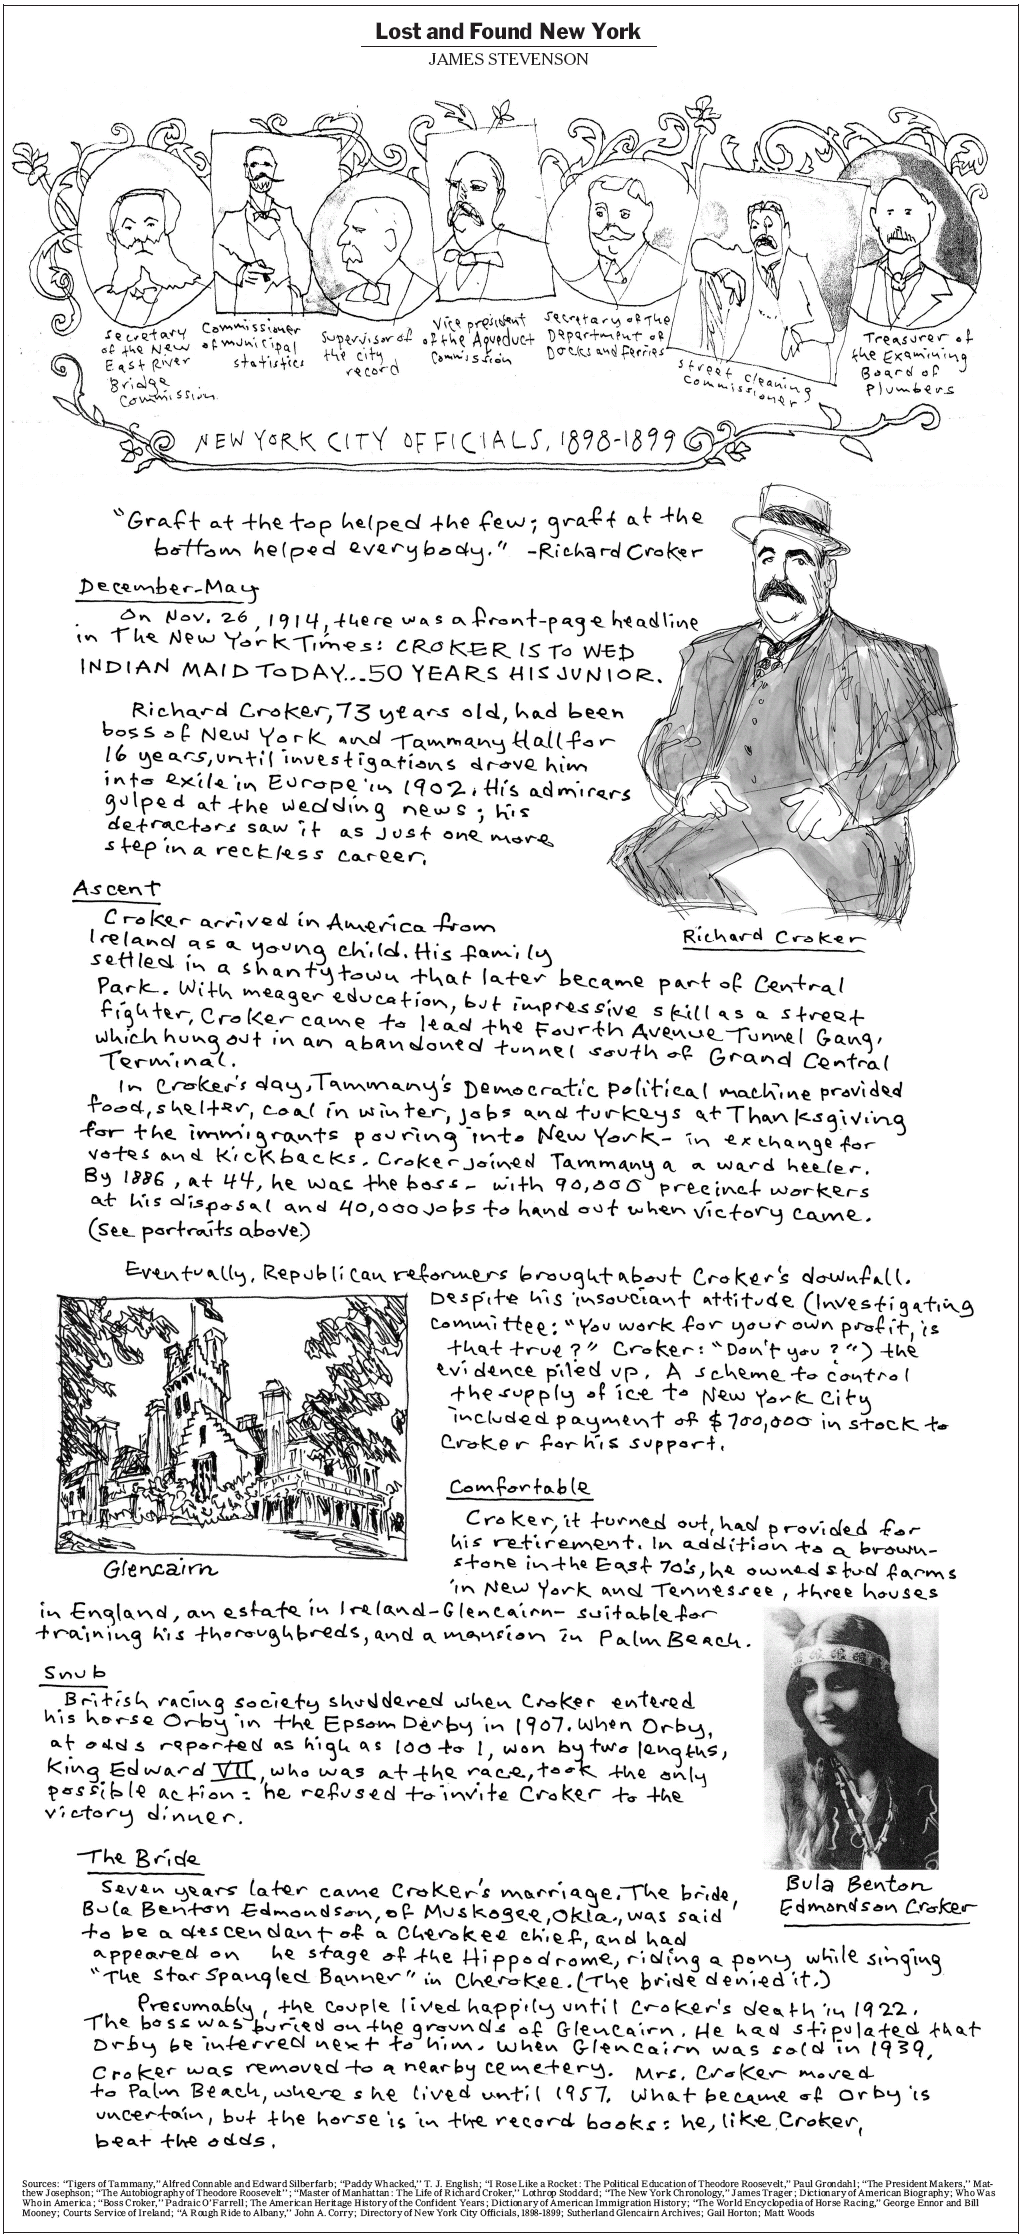 Lost and Found New York
JAMES STEVENSON
Secretary
of the New
East River
Bridge
Commission.
Commissioner
of municipal
statistics
Supervisor of
the city
record
Vice president
of the Aqueduct
Commission
Secretary of the
Department of
Docks and ferries
Street cleaning
Commissioner
Treasurer of
the Examining
Board of
Plumbers
NEW YORK CITY OFFICIALS, 1898-1899
"Graft at the top helped the few; graft at the
bottom helped everybody." -Richard Croker
December-May
On Nov. 26, 1914, there was a front-page headline
in The New York Times: CROKER IS TO WED
INDIAN MAID TODAY...50 YEARS HIS JUNIOR.
Richard Croker, 73 years old, had been
boss of New York and Tammany Hall for
16 years, until investigations drove him
into exile in Europe in 1902. His admirers
gulped at the wedding news; his
detractors saw it as just one more
step in a reckless career.
Richard Croker
Ascent
Croker arrived in America from
Ireland as a young child. His family
settled in a shantytown that later became part of Central
Park. With meager education, but impressive skill as a street
fighter, Croker came to lead the Fourth Avenue Tunnel Gang,
which hung out in an abandoned tunnel south of Grand Central
Terminal.
In Croker's day, Tammany's Democratic political machine provided
food, shelter, coal in winter, jobs and turkeys at Thanksgiving
for the immigrants pouring into New York- in exchange for
votes and kickbacks. Croker joined Tammany a a ward heeler.
By 1886, at 44, he was the boss- with 90,000 precinct workers
at his disposal and 40,000 jobs to hand out when victory came.
(See portraits above.)
Eventually, Republican reformers brought about Croker's downfall.
Despite his insouciant attitude (Investigating
committee: "You work for your own profit, is
that true?" Croker: "Don't you?") the
evidence piled up. A scheme to control
the supply of ice to New York City
included payment of $700,000 in stock to
Croker for his support.
Glencairn
Comfortable
Croker, it turned out, had provided for
his retirement. In addition to a brown-
stone in the East 70's, he owned stud farms
in New York and Tennessee, three houses
in England, an estate in Ireland-Glencairn- suitable for
training his thoroughbreds, and a mansion in Palm Beach.
Snub
British racing society shuddered when Croker entered
his horse Orby in the Epsom Derby in 1907. When Orby,
at odds reported as high as 100 to 1, won by two lengths,
King Edward VII, who was at the race, took the only
possible action: he refused to invite Croker to the
victory dinner.
Bula Benton
Edmondson Croker
The Bride
Seven years later came Croker's marriage. The bride,
Bula Benton Edmondson, of Muskogee, Okla., was said
to be a descendant of a Cherokee chief, and had
appeared on he stage of the Hippodrome, riding a pony while singing
"The Star Spangled Banner" in Cherokee. (The bride denied it.)
Presumably, the couple lived happily until Croker's death in 1922.
The boss was buried on the grounds of Glencairn. He had stipulated that
Orby be interred next to him. When Glencairn was sold in 1939,
Croker was removed to a nearby cemetery. Mrs. Croker moved
to Palm Beach, where she lived until 1957. What became of Orby is
uncertain, but the horse is in the record books: he, like Croker,
beat the odds.
Sources: "Tigers of Tammany," Alfred Connable and Edward Silberfarb; "Paddy Whacked," T. J. English; "I Rose Like a Rocket: The Political Education of Theodore Roosevelt," Paul Grondahl; "The President Makers," Mat-
thew Josephson; "The Autobiography of Theodore Roosevelt"; "Master of Manhattan: The Life of Richard Croker," Lothrop Stoddard; "The New York Chronology," James Trager; Dictionary of American Biography; Who Was
Who in America; "Boss Croker," Padraic O'Farrell; The American Heritage History of the Confident Years; Dictionary of American Immigration History; "The World Encyclopedia of Horse Racing," George Ennor and Bill
Mooney; Courts Service of Ireland; "A Rough Ride to Albany," John A. Corry; Directory of New York City Officials, 1898-1899; Sutherland Glencairn Archives; Gail Horton; Matt Woods